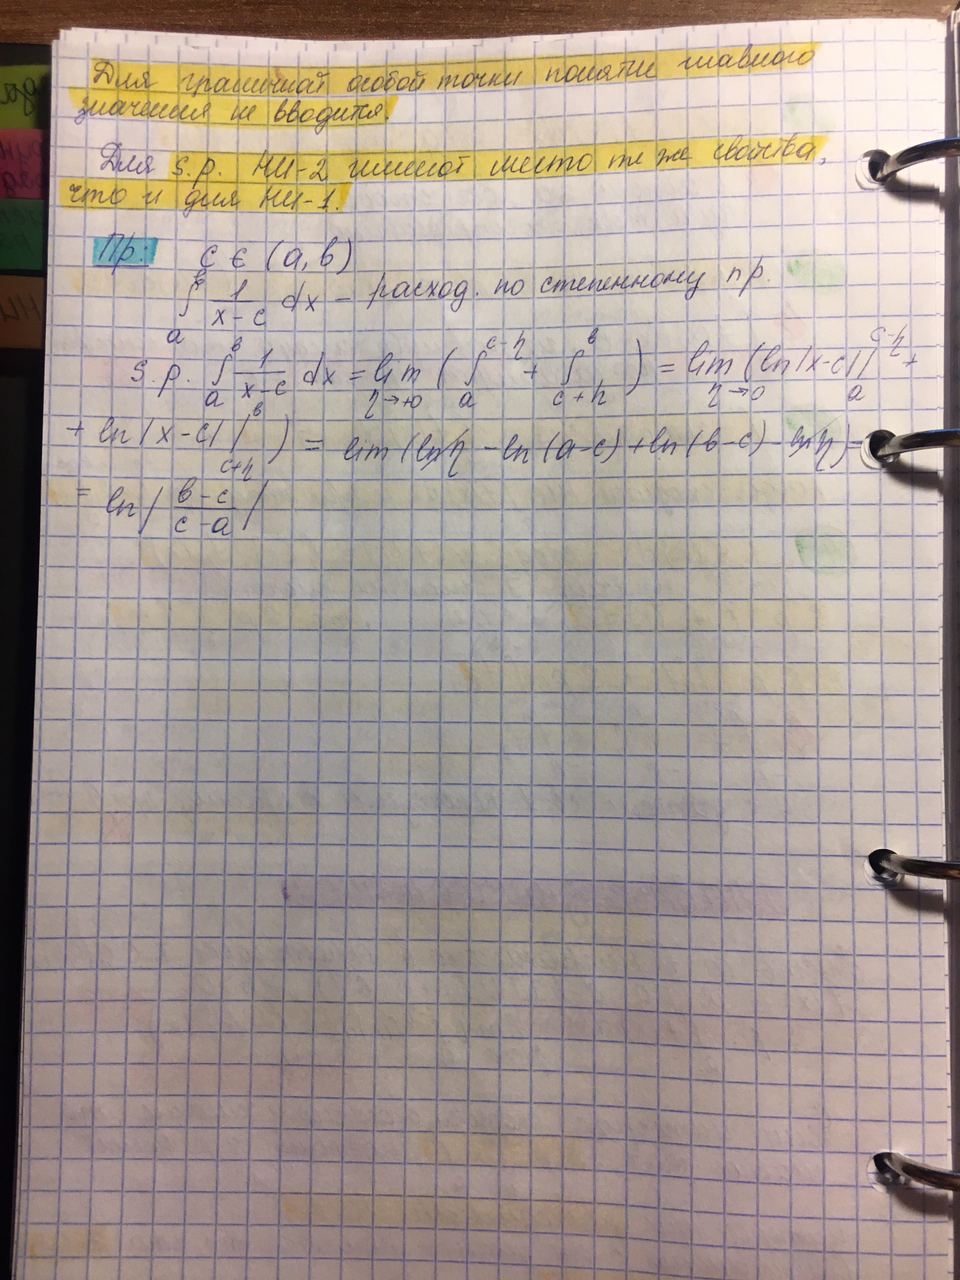 Для граничной особой точки понятие главного
значения не вводится.
Для s.p. НИ-2 имеют место те же свойства,
что и для НИ-1.
Пр: c ∈ (a, b)
∫_a^b 1/(x-c) dx – расход. по степенному пр.
s.p. ∫_a^b 1/(x-c) dx = lim_{η→+0} ( ∫_a^{c-η} + ∫_{c+η}^b ) = lim_{η→0} (ln|x-c| |_a^{c-η} +
+ ln|x-c| |_{c+η}^b ) = lim (ln η - ln (a-c) + ln (b-c) - ln η) =
= ln | (b-c)/(c-a) |